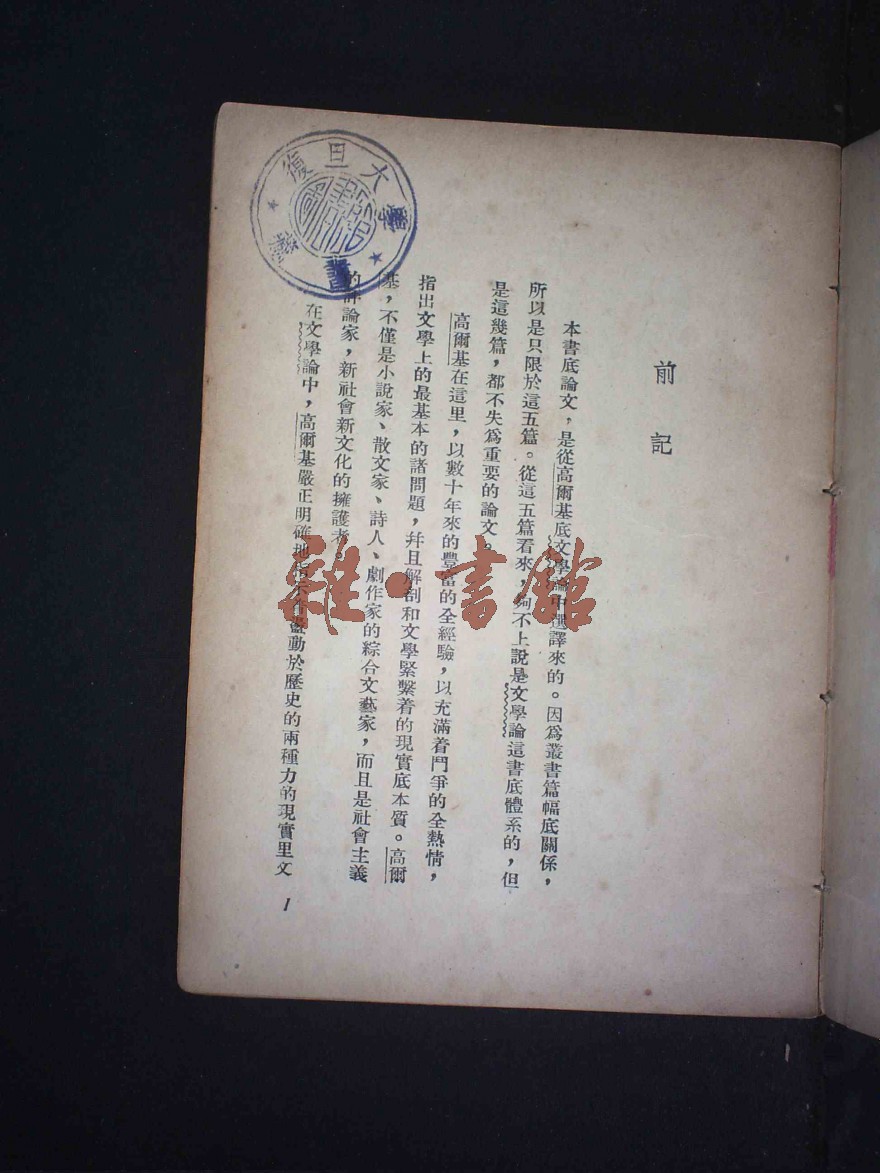 前記
本書底論文，是從高爾基底文學論中選譯來的。因爲叢書篇幅底關係，
所以是只限於這五篇。從這五篇看來，夠不上說是文學論這書底體系的，但
是這幾篇，都不失爲重要的論文。
高爾基在這里，以數十年來的豐富的全經驗，以充滿着鬥爭的全熱情，
指出文學上的最基本的諸問題，幷且解剖和文學緊繫着的現實底本質。高爾
基，不僅是小說家、散文家、詩人、劇作家的綜合文藝家，而且是社會主義
的評論家，新社會新文化的擁護者。
在文學論中，高爾基嚴正明確地指示作盪動於歷史的兩種力的現實里文
1
復旦大學
書
雜·書館